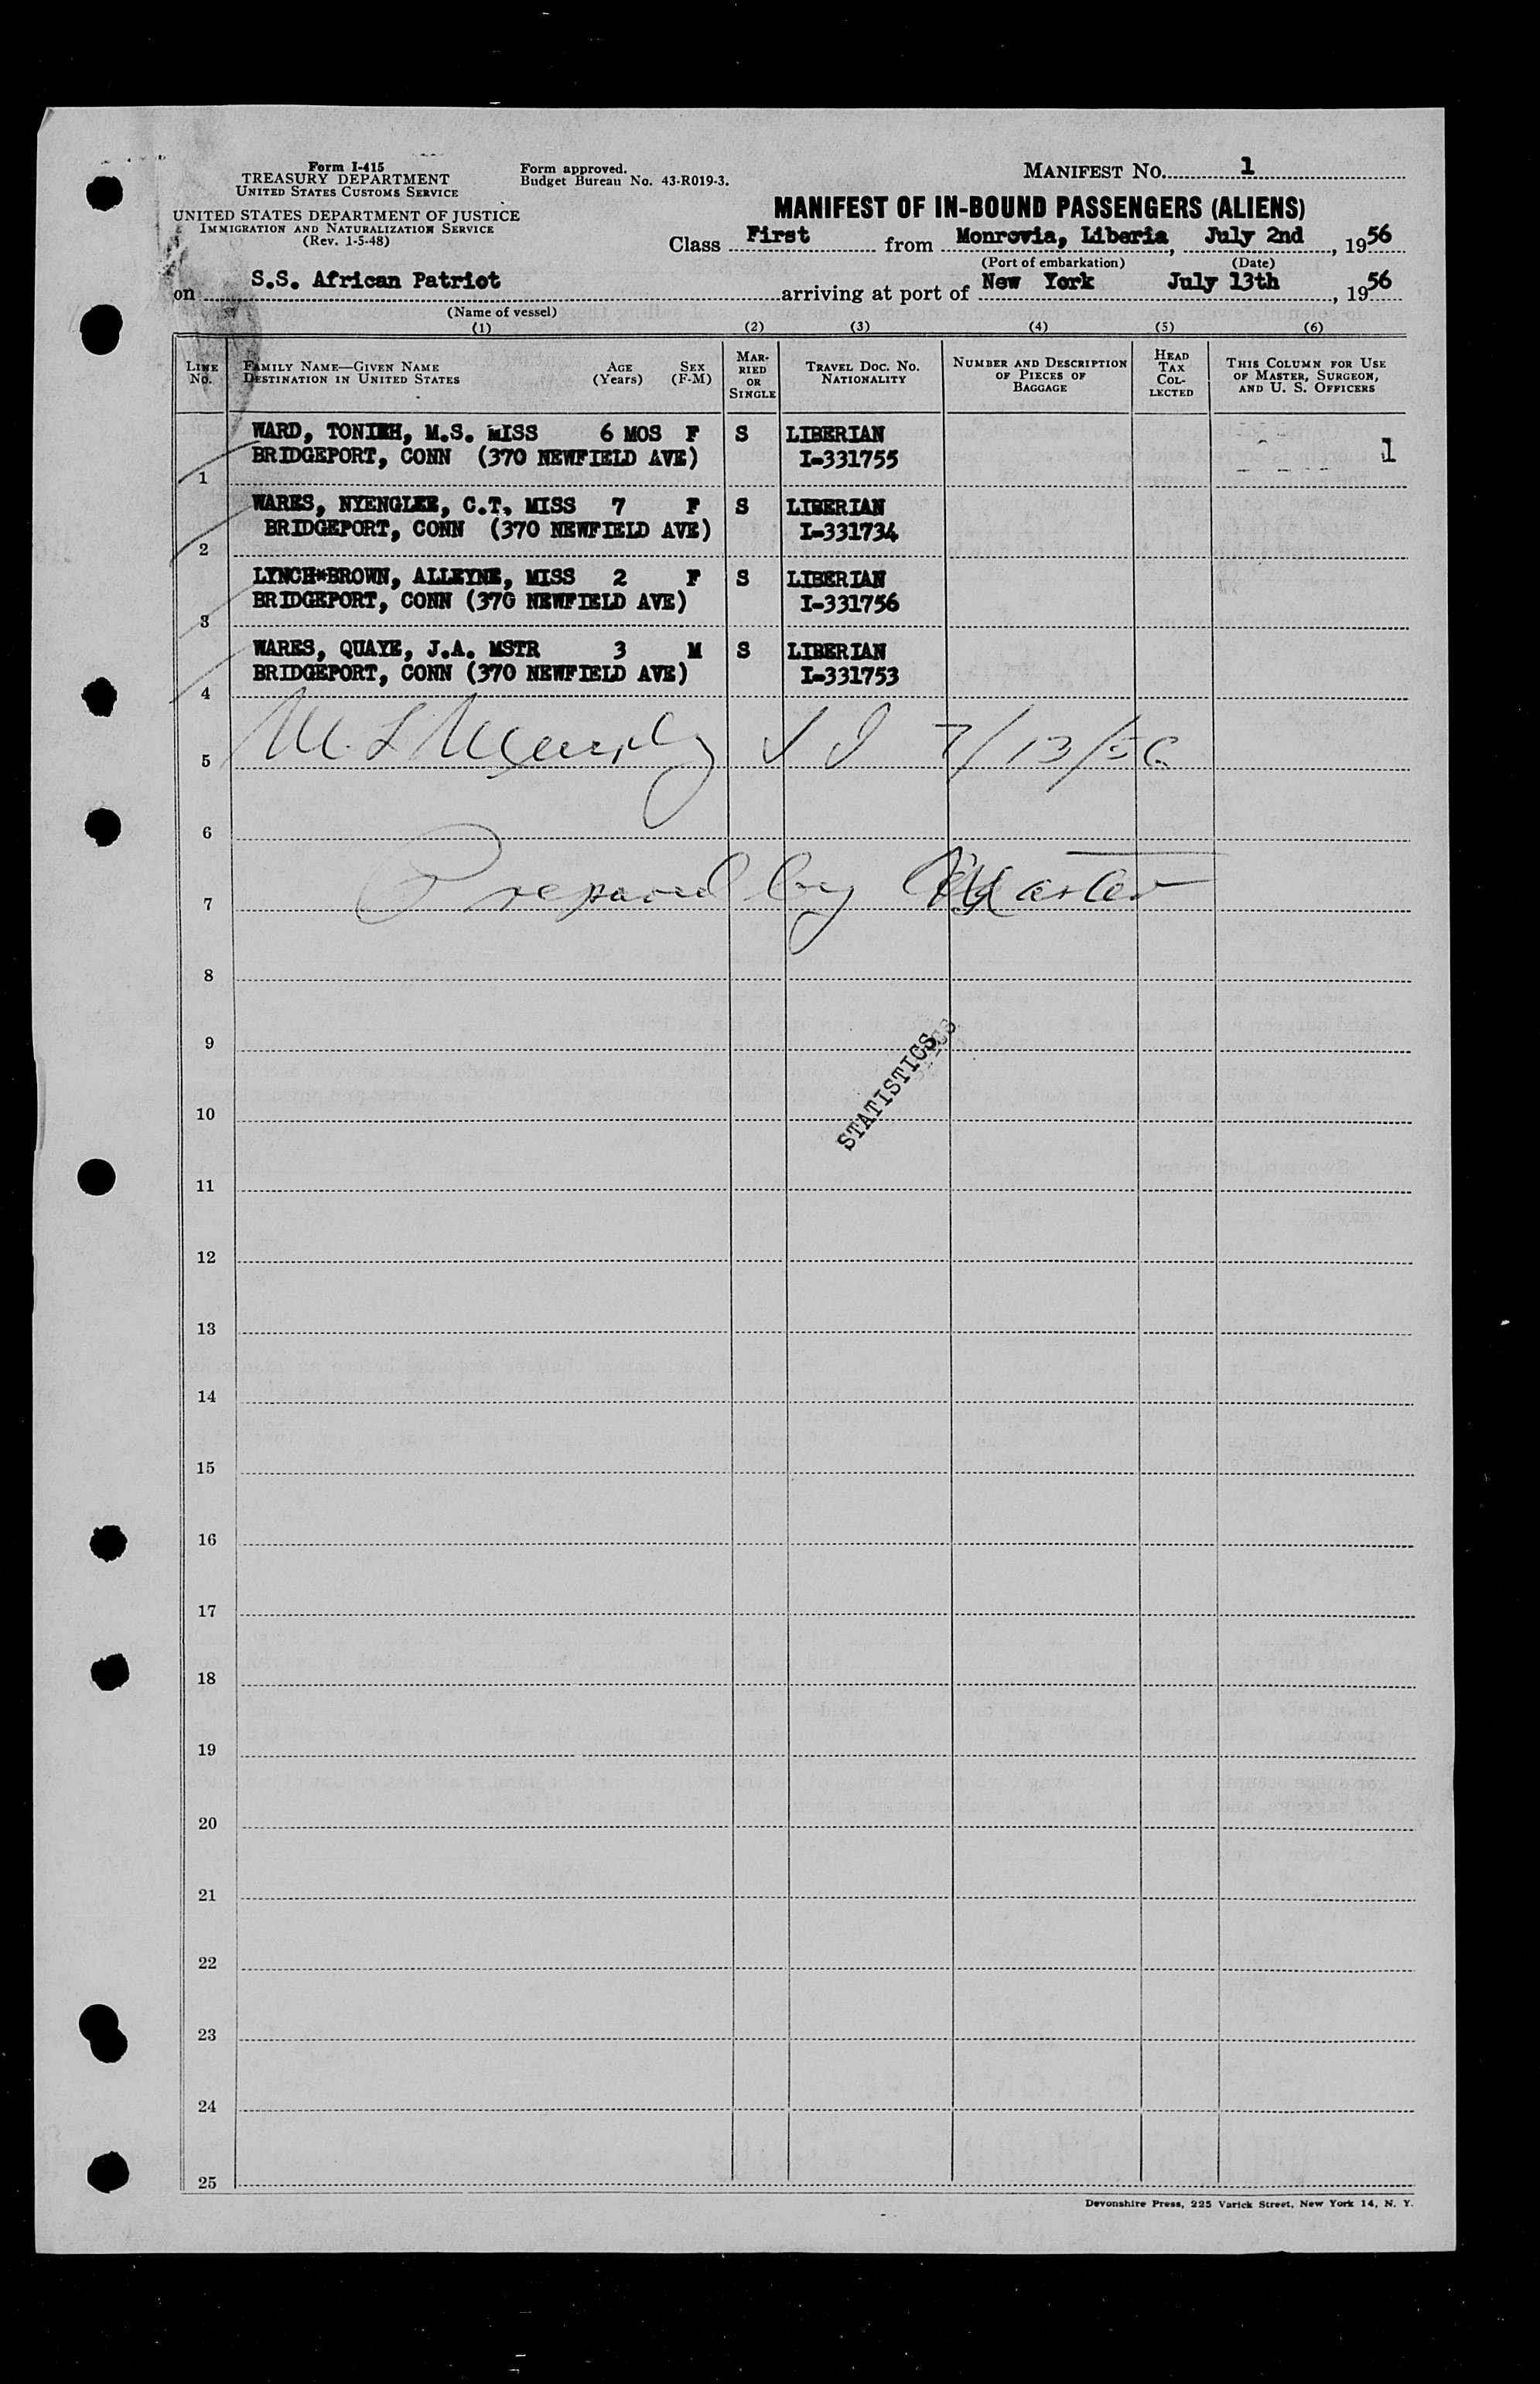 Form I-415
TREASURY DEPARTMENT
UNITED STATES CUSTOMS SERVICE
UNITED STATES DEPARTMENT OF JUSTICE
IMMIGRATION AND NATURALIZATION SERVICE
(Rev. 1-5-48)
Form approved.
Budget Bureau No. 43-R019-3.
MANIFEST NO. 1
MANIFEST OF IN-BOUND PASSENGERS (ALIENS)
Class First from Monrovia, Liberia, July 2nd, 1956
(Port of embarkation) (Date)
on S.S. African Patriot arriving at port of New York July 13th, 1956
(Name of vessel)
(1) (2) (3) (4) (5) (6)
LINE NO.
FAMILY NAME—GIVEN NAME AGE SEX
DESTINATION IN UNITED STATES (Years) (F-M)
MARRIED OR SINGLE
TRAVEL DOC. NO. NATIONALITY
NUMBER AND DESCRIPTION OF PIECES OF BAGGAGE
HEAD TAX COLLECTED
THIS COLUMN FOR USE OF MASTER, SURGEON, AND U. S. OFFICERS
WARD, TONIEH, M.S. MISS 6 MOS F S LIBERIAN
1 BRIDGEPORT, CONN (370 NEWFIELD AVE) I-331755 1
WARES, NYENGLEE, C.T, MISS 7 F S LIBERIAN
2 BRIDGEPORT, CONN (370 NEWFIELD AVE) I-331734
LYNCH*BROWN, ALLEYNE, MISS 2 F S LIBERIAN
3 BRIDGEPORT, CONN (370 NEWFIELD AVE) I-331756
WARES, QUAYE, J.A. MSTR 3 M S LIBERIAN
4 BRIDGEPORT, CONN (370 NEWFIELD AVE) I-331753
5 7/13/56
6
7 Prepared by Master
8
9
STATISTICS
10
11
12
13
14
15
16
17
18
19
20
21
22
23
24
25
Devonshire Press, 225 Varick Street, New York 14, N. Y.